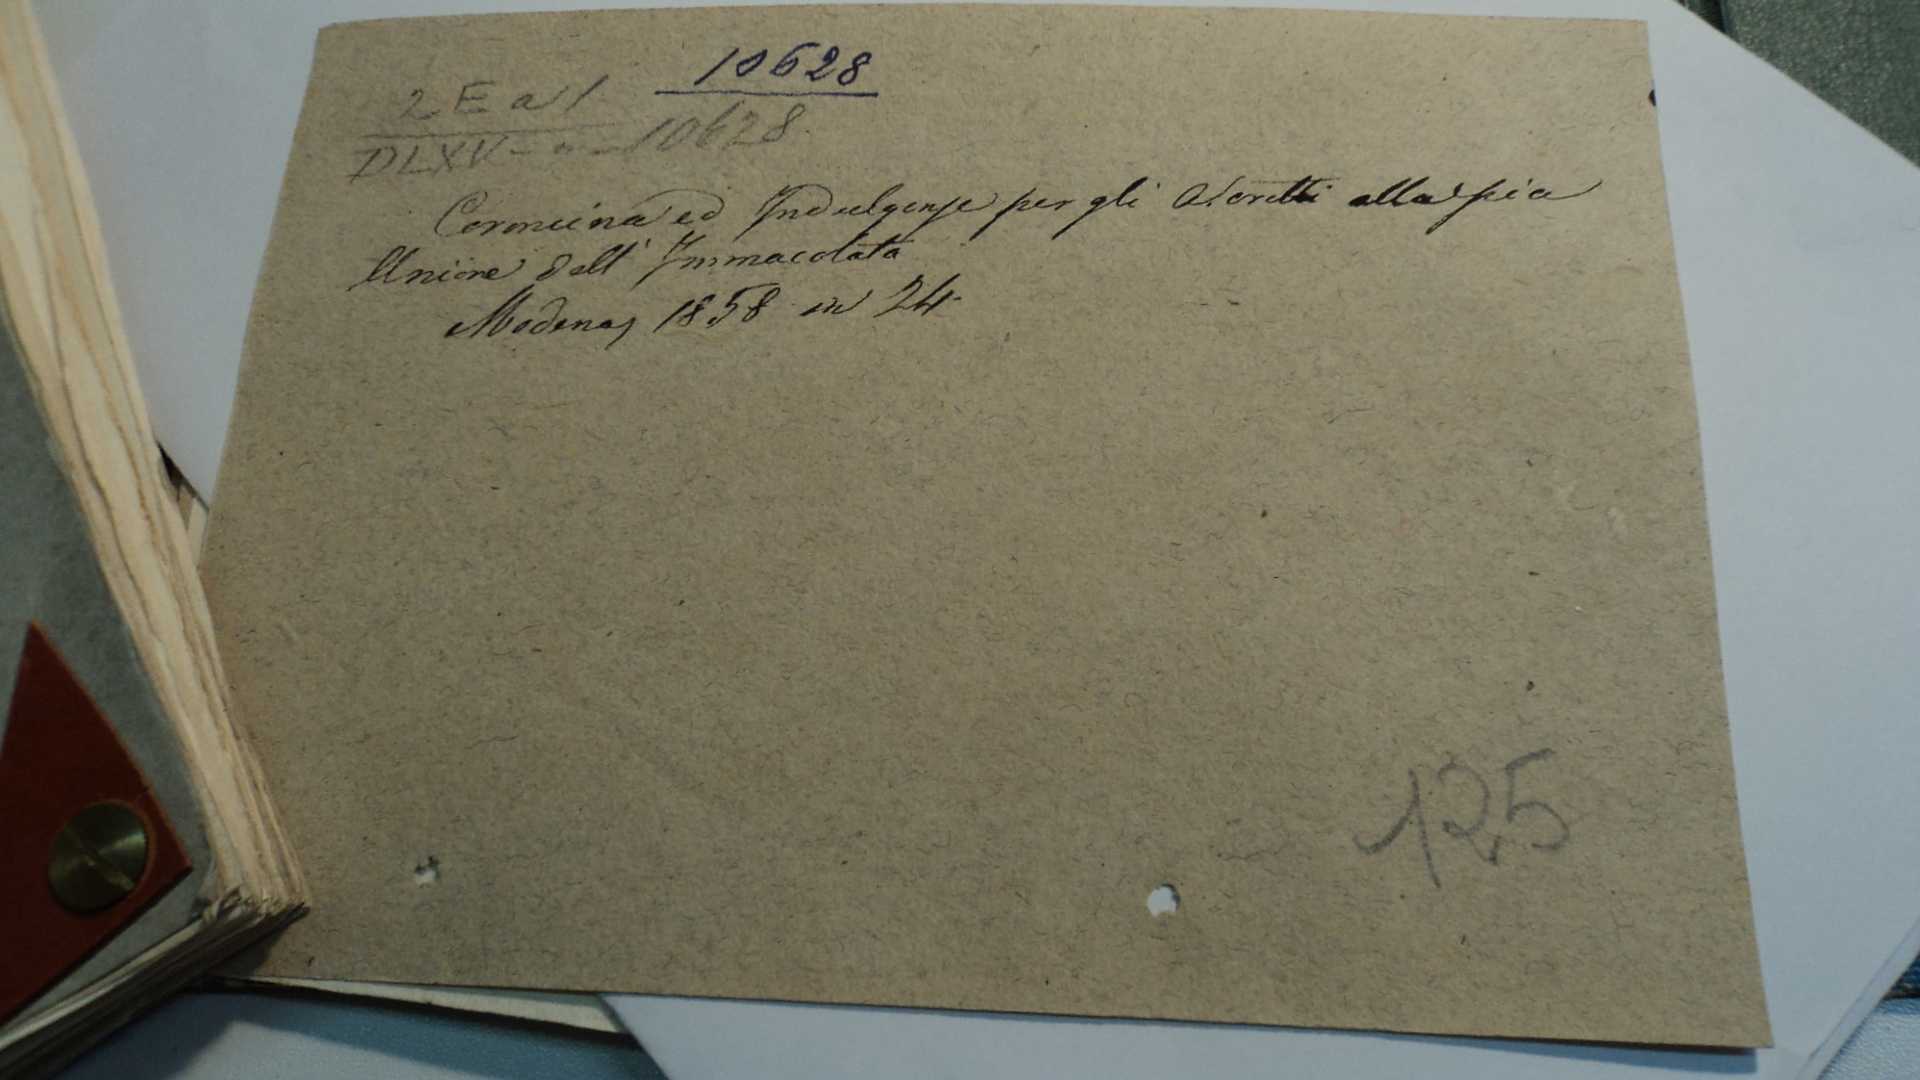 10628
2 E a 1
DLXV - n - 10628
Coroncina ed Indulgenze per gli Ascritti alla pia
Unione dell' Immacolata
Modena, 1858 in 24
125